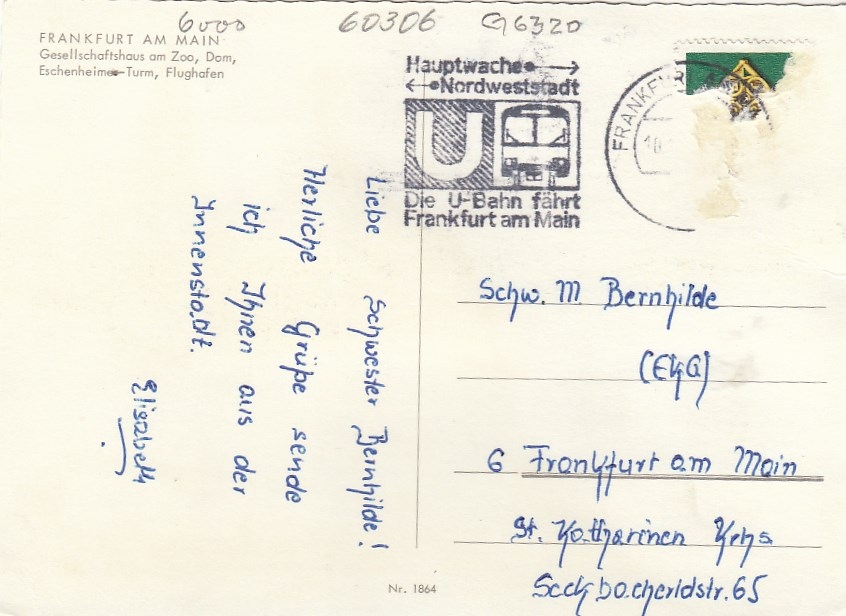 6000 60306 G6320
FRANKFURT AM MAIN
Gesellschaftshaus am Zoo, Dom,
Eschenheimer-Turm, Flughafen
Hauptwache
Nordweststadt
U
Die U-Bahn fährt
Frankfurt am Main
FRANKFURT
10.
Liebe Schwester Bernhilde!
Herliche Grüße sende
ich Ihnen aus der
Innenstadt.
Elisabeth
Schw. M. Bernhilde
(EKG)
6 Frankfurt am Main
St. Katharinen Krhs.
Seckbacherldstr. 65
Nr. 1864